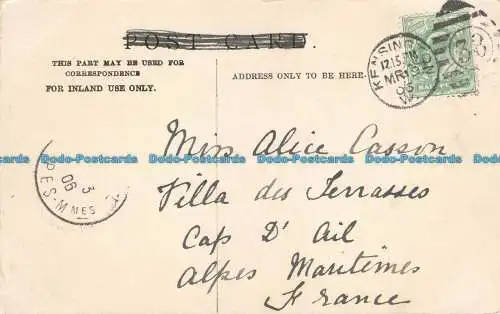 POST CARD.
THIS PART MAY BE USED FOR
CORRESPONDENCE
FOR INLAND USE ONLY.
ADDRESS ONLY TO BE HERE.
KENSINGTON
12.15 PM
MR
06
W
Miss Alice Casson
Villa des Terrasses
Cap D' Ail
Alpes Maritimes
France
3
06
PES-MMES
Dodo-Postcards Dodo-Postcards Dodo-Postcards Dodo-Postcards